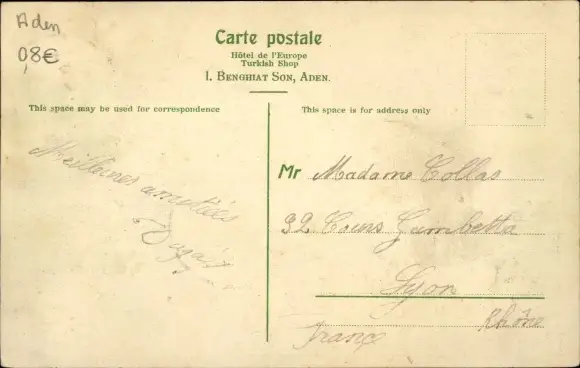 Aden
08€
Carte postale
Hôtel de l'Europe
Turkish Shop
I. BENGHIAT SON, ADEN.
This space may be used for correspondence
This space is for address only
Meilleures amitiés
Mr Madame Collas
32 Cours Gambetta
Lyon
Rhône
France